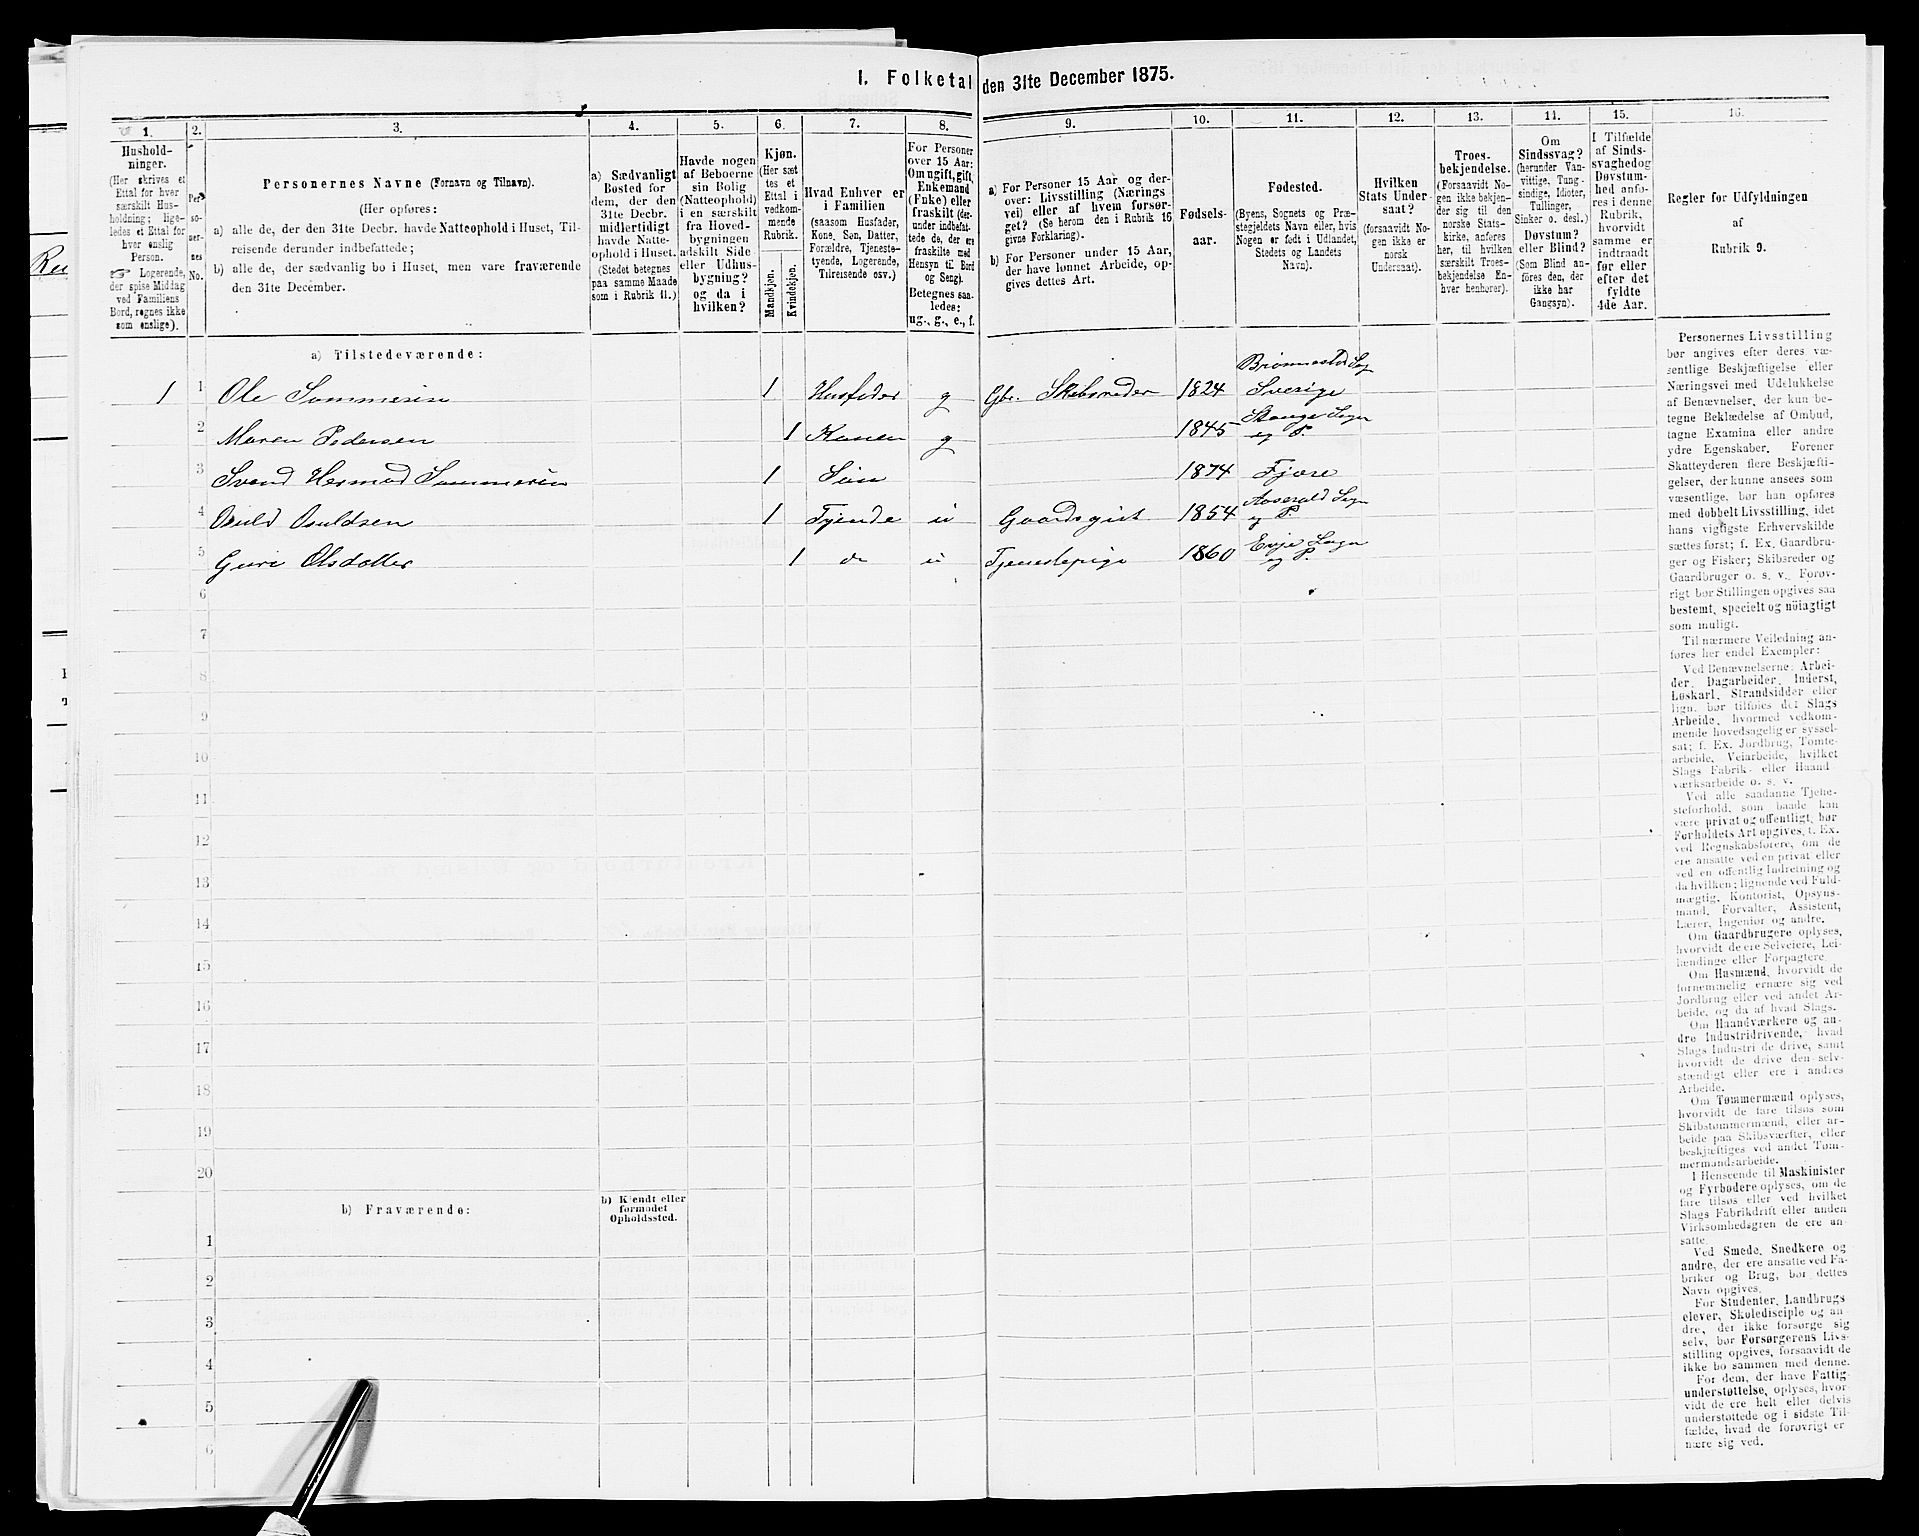 1. Folketal den 31te December 1875.
1.
2.
3.
4.
5.
6.
7.
8.
9.
10.
11.
12.
13.
14.
15.
16.
Hushold-
ninger.
(Her skrives et
Ettal for hver
særskilt Hus-
holdning; lige-
ledes et Ettal for
hver enslig
Person.
☞ Logerende,
der spise Middag
ved Familiens
Bord, regnes ikke
som enslige).
Per
so-
ner-
nes
No.
Personernes Navne (Fornavn og Tilnavn).
(Her opføres:
a) alle de, der den 31te Decbr. havde Natteophold i Huset, Til-
reisende derunder indbefattede;
b) alle de, der sædvanlig bo i Huset, men vare fraværende
den 31te December.
a) Sædvanligt
Bosted for
dem, der den
31te Decbr.
midlertidigt
havde Natte-
ophold i Huset.
(Stedet betegnes
paa samme Maade
som i Rubrik 11.)
Havde nogen
af Beboerne
sin Bolig
(Natteophold)
i en særskilt
fra Hoved-
bygningen
adskilt Side-
eller Udhus-
bygning?
og da i
hvilken?
Kjøn.
(Her sæt
tes et
Ettal i
vedkom-
mende
Rubrik.
Mandkjøn.
Kvindekjøn.
Hvad Enhver er
i Familien
(saasom Husfader,
Kone, Søn, Datter,
Forældre, Tjeneste-
tyende, Logerende,
Tilreisende osv.)
For Personer
over 15 Aar:
Om ugift, gift,
Enkemand
(Enke) eller
fraskilt (der-
under indbefat-
tede de, der ere
fraskilte med
Hensyn til Bord
og Seng).
Betegnes saa-
ledes:
ug., g., e., f.
a) For Personer 15 Aar og der-
over: Livsstilling (Nærings
vei) eller af hvem forsør-
get? (Se herom den i Rubrik 16
givne Forklaring).
b) For Personer under 15 Aar,
der have lønnet Arbeide, op-
gives dettes Art.
Fødsels-
aar.
Fødested.
(Byens, Sognets og Præ-
stegjeldets Navn eller, hvis
Nogen er født i Udlandet,
Stedets og Landets
Navn).
Hvilken
Stats Under-
saat?
(forsaavidt No-
gen ikke er
norsk
Undersaat).
Troes-
bekjendelse.
(Forsaavidt No-
gen ikke bekjen-
der sig til den
norske Stats-
kirke, anføres
her, til hvilken
særskilt Troes-
bekjendelse En-
hver henhører).
Om
Sindssvag?
(herunder Van-
vittige, Tung-
sindige, Idioter,
Tullinger,
Sinker o. desl.)
Døvstum?
eller Blind?
(Som Blind an-
føres den, der
ikke har
Gangsyn).
I Tilfælde
af Sinds-
svaghed og
Døvstum-
hed anfø-
res i denne
Rubrik,
hvorvidt
samme er
indtraadt
før eller
efter det
fyldte
4de Aar.
Regler for Udfyldningen
af
Rubrik 9.
a) Tilstedeværende:
1 1 Ole Sommerin 1 Husfader g Gbr. Skibsreder 1824 Sverige
2 Maren Pedersen 1 Konen g 1845 Stange Sogn og P.
3 Svend Hermod Sommerin 1 Søn 1874 Fjære
4 Osuld Osuldsen 1 Tjende u Gaardsgut 1854 Aaserald Sogn og P.
5 Guri Olsdatter 1 do u Tjenestepige 1860 Evje Sogn og P.
6
7
8
9
10
11
12
13
14
15
16
17
18
19
20
b) Fraværende:
b) Kjendt eller
formodet
Opholdssted.
1
2
3
4
5
6
Personernes Livsstilling
bør angives efter deres væ-
sentlige Beskjæftigelse eller
Næringsvei med Udelukkelse
af Benævnelser, der kun be-
tegne Beklædelse af Ombud,
tagne Examina eller andre
ydre Egenskaber. Forener
Skatteyderen flere Beskjæfti-
gelser, der kunne ansees som
væsentlige, bør han opføres
med dobbelt Livsstilling, idet
hans vigtigste Erhvervskilde
sættes først; f. Ex. Gaardbru-
ger og Fisker; Skibsreder og
Gaardbruger o. s. v. Forøv-
rigt bør Stillingen opgives saa
bestemt, specielt og nöiagtigt
som muligt.
Til nærmere Veiledning an-
føres her endel Exempler:
Ved Benævnelserne: Arbei-
der, Dagarbeider, Inderst,
Løskarl, Strandsidder eller
lign. bør tilføies det Slags
Arbeide, hvormed vedkom-
mende hovedsagelig er syssel-
sat; f. Ex. Jordbrug, Tomte-
arbeide, Veiarbeide, hvilket
Slags Fabrik- eller Haand-
værksarbeide o. s. v.
Ved alle saadanne Tjene-
steforhold, som baade kan
være privat og offentligt, bør
Forholdets Art opgives, t. Ex.
ved Regnskabsførere, om de
ere ansatte ved en privat eller
ved en offentlig Indretning og
da hvilken; lignende ved Fuld-
mægtig, Kontorist, Opsyns-
mand, Forvalter, Assistent,
Lærer, Ingeniør og andre.
Om Gaardbrugere oplyses,
hvorvidt de ere Selveiere, Lei-
lændinge eller Forpagtere.
Om Husmænd, hvorvidt de
fornemmelig ernære sig ved
Jordbrug eller ved andet Ar-
beide, og da af hvad Slags.
Om Haandværkere og an-
dre Industridrivende, hvad
Slags Industri de drive, samt
hvorvidt de drive den selv-
stændigt eller ere i andres
Arbeide.
Om Tømmermænd oplyses,
hvorvidt de fare tilsøs som
Skibstømmermænd, eller ar-
beide paa Skibsværfter, eller
beskjæftiges ved andet Tøm-
mermandsarbeide.
I Henseende til Maskinister
og Fyrbødere oplyses, om de
fare tilsøs eller ved hvilket
Slags Fabrikdrift eller anden
Virksomhedsgren de ere an-
satte.
Ved Smede, Snedkere og
andre, der ere ansatte ved Fa-
briker og Brug, bør dettes
Navn opgives.
For Studenter, Landbrugs
elever, Skoledisciple og an-
dre, der ikke forsørge sig
selv, bør Forsørgerens Livs-
stilling opgives, forsaavidt de
ikke bo sammen med denne.
For dem, der have Fattig-
understøttelse, oplyses, hvor-
vidt de ere helt eller delvis
understøttede og i sidste Til-
fælde, hvad de forøvrigt er
nære sig ved.